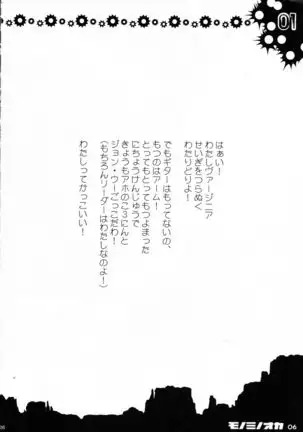 01
はぁい！
わたしヴァージニア
せいぎをつらぬく
わたりどりよ！
でもギターはもってないの、
もつのはアーム！
とってもとってもつよまった
にちょうけんじゅうで
きょうもアホのこ3にんと
ジョン・ウーごっこだわ！
(もちろんリーダーはわたしなのよー)
わたしってかっこいい！
モノミノオカ 06
06